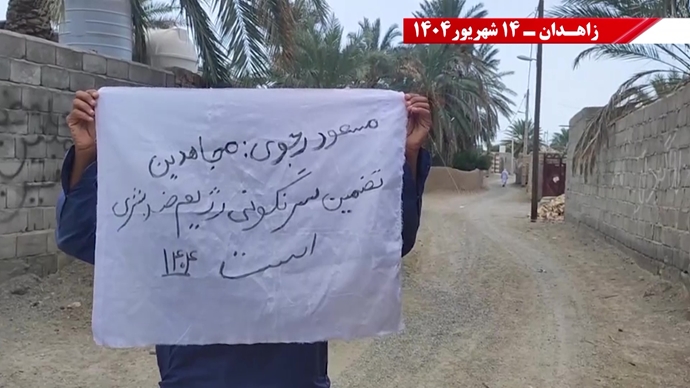 زاهدان ــ ۱۴ شهریور ۱۴۰۴
مسعود رجوی: مجاهدین
تضمین سرنگونی رژیم ضد بشری
است ۱۴۰۴